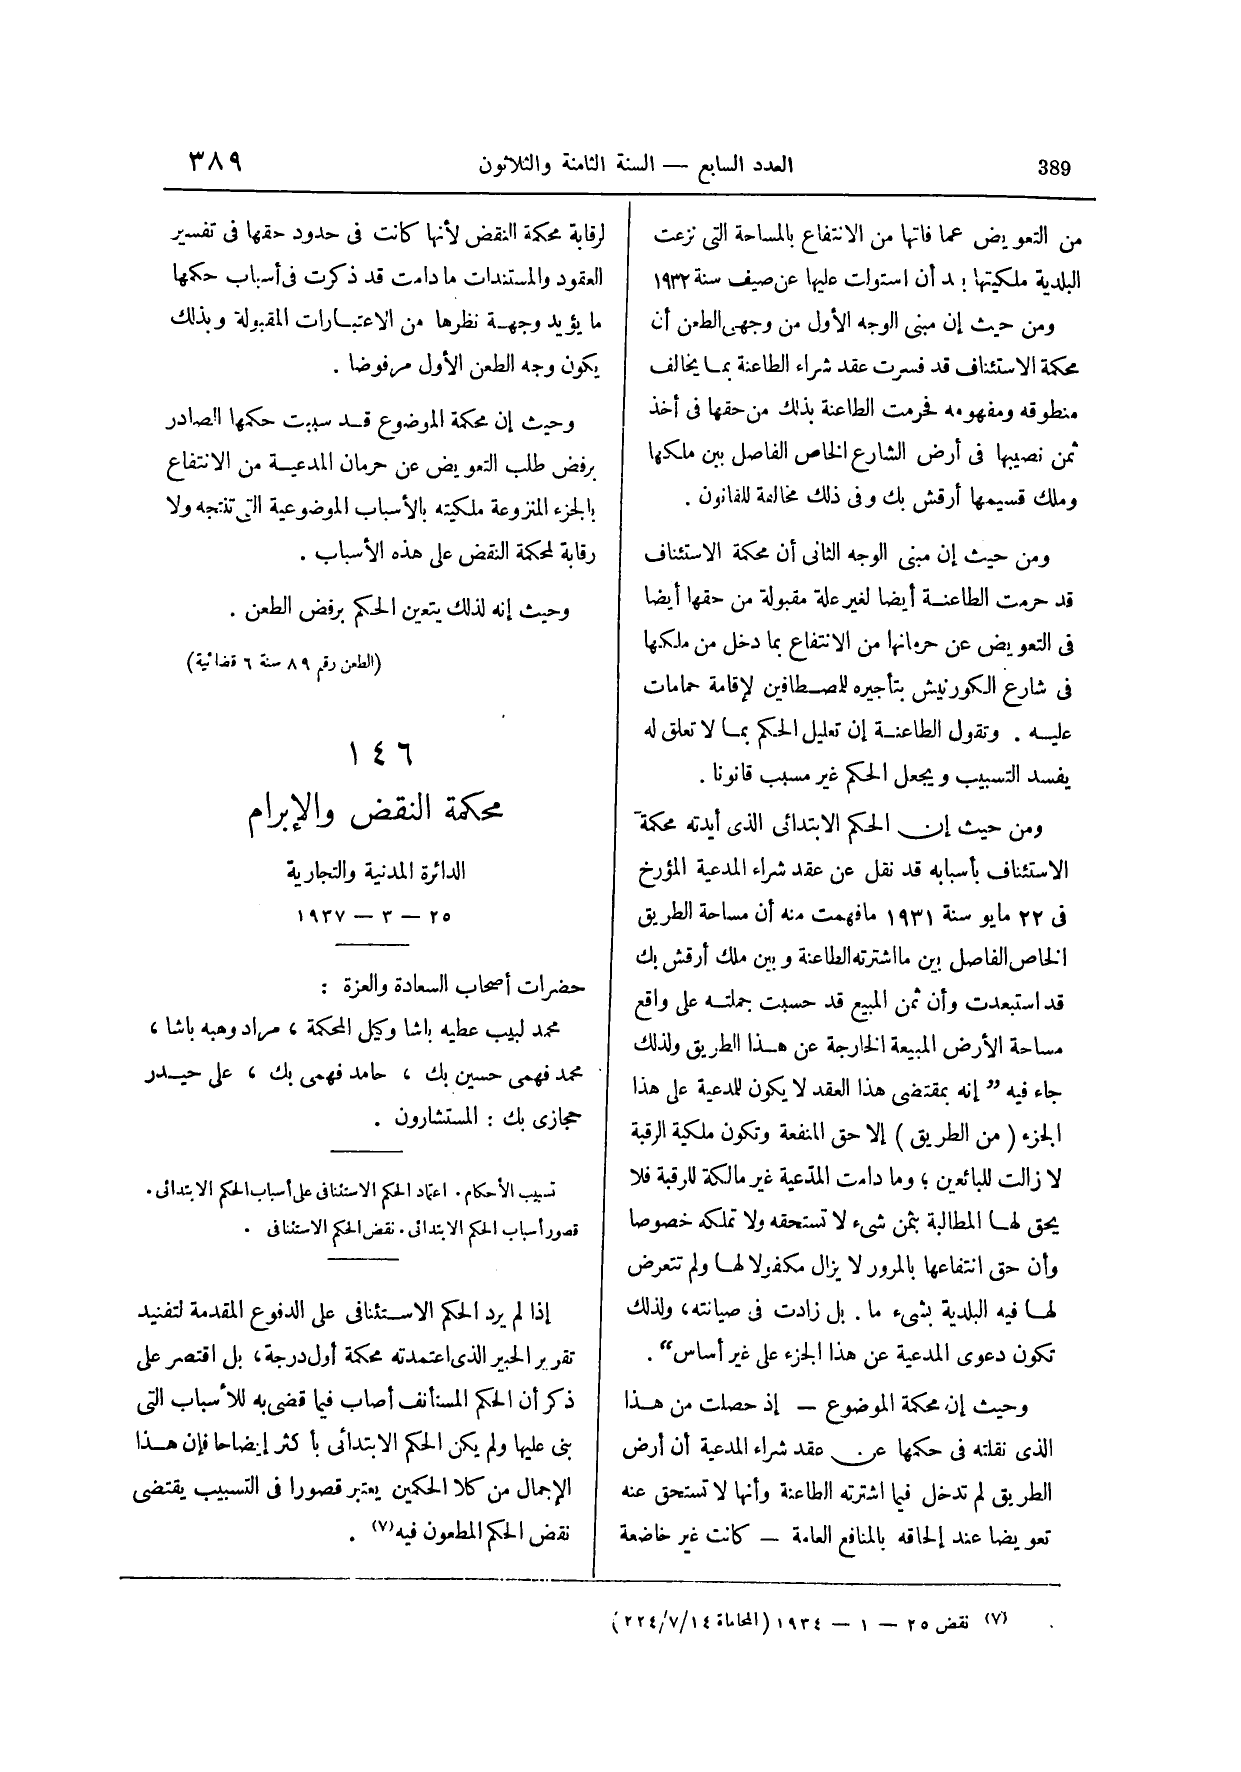 389
العدد السابع — السنة الثامنة والثلاثون
٣٨٩
من التعويض عما فاتها من الانتفاع بالمساحة التى نزعت
البلدية ملكيتها بعد أن استولت عليها عن صيف سنة ١٩٣٢
ومن حيث إن مبنى الوجه الأول من وجهى الطعن أن
محكمة الاستئناف قد فسرت عقد شراء الطاعنة بما يخالف
منطوقه ومفهومه فحرمت الطاعنة بذلك من حقها فى أخذ
ثمن نصيبها فى أرض الشارع الخاص الفاصل بين ملكها
وملك قسيمها أرقش بك وفى ذلك مخالفة للقانون .
ومن حيث إن مبنى الوجه الثانى أن محكمة الاستئناف
قد حرمت الطاعنة أيضا لغير علة مقبولة من حقها أيضا
فى التعويض عن حرمانها من الانتفاع بما دخل من ملكها
فى شارع الكورنيش بتأجيره للمصطافين لإقامة حمامات
عليه . وتقول الطاعنة إن تعليل الحكم بما لا تعلق له
يفسد التسبيب ويجعل الحكم غير مسبب قانونا .
ومن حيث إن الحكم الابتدائى الذى أيدته محكمة
الاستئناف بأسبابه قد نقل عن عقد شراء المدعية المؤرخ
فى ٢٢ مايو سنة ١٩٣١ مافهمت منه أن مساحة الطريق
الخاص الفاصل بين مااشترته الطاعنة وبين ملك أرقش بك
قد استبعدت وأن ثمن المبيع قد حسبت جملته على واقع
مساحة الأرض المبيعة الخارجة عن هذا الطريق ولذلك
جاء فيه ” إنه بمقتضى هذا العقد لا يكون للمدعية على هذا
الجزء ( من الطريق ) إلا حق المنفعة وتكون ملكية الرقبة
لا زالت للبائعين ؛ وما دامت المدّعية غير مالكة للرقبة فلا
يحق لها المطالبة بثمن شىء لا تستحقه ولا تملكه خصوصا
وأن حق انتفاعها بالمرور لا يزال مكفولا لها ولم تتعرض
لها فيه البلدية بشىء ما . بل زادت فى صيانته، ولذلك
تكون دعوى المدعية عن هذا الجزء على غير أساس“ .
وحيث إن محكمة الموضوع — إذ حصلت من هذا
الذى نقلته فى حكمها عن عقد شراء المدعية أن أرض
الطريق لم تدخل فيما اشترته الطاعنة وأنها لا تستحق عنه
تعويضا عند إلحاقه بالمنافع العامة — كانت غير خاضعة
لرقابة محكمة النقض لأنها كانت فى حدود حقها فى تفسير
العقود والمستندات ما دامت قد ذكرت فى أسباب حكمها
ما يؤيد وجهة نظرها من الاعتبارات المقبولة وبذلك
يكون وجه الطعن الأول مرفوضا .
وحيث إن محكمة الموضوع قد سببت حكمها الصادر
برفض طلب التعويض عن حرمان المدعية من الانتفاع
بالجزء المنزوعة ملكيته بالأسباب الموضوعية التى تنتجه ولا
رقابة لمحكمة النقض على هذه الأسباب .
وحيث إنه لذلك يتعين الحكم برفض الطعن .
(الطعن رقم ٨٩ سنة ٦ قضائية)
١٤٦
محكمة النقض والإبرام
الدائرة المدنية والتجارية
٢٥ — ٣ — ١٩٣٧
حضرات أصحاب السعادة والعزة :
محمد لبيب عطيه باشا وكيل المحكمة ، مراد وهبه باشا ،
محمد فهمى حسين بك ، حامد فهمى بك ، على حيدر
حجازى بك : المستشارون .
تسبيب الأحكام . اعتماد الحكم الاستئنافى على أسباب الحكم الابتدائى .
قصور أسباب الحكم الابتدائى . نقض الحكم الاستئنافى .
إذا لم يرد الحكم الاستئنافى على الدفوع المقدمة لتفنيد
تقرير الخبير الذى اعتمدته محكمة أول درجة، بل اقتصر على
ذكر أن الحكم المستأنف أصاب فيما قضى به للأسباب التى
بنى عليها ولم يكن الحكم الابتدائى بأكثر إيضاحا فإن هذا
الإجمال من كلا الحكمين يعتبر قصورا فى التسبيب يقتضى
نقض الحكم المطعون فيه(٧) .
(٧) نقض ٢٥ — ١ — ١٩٣٤ (المحاماة ٢٢٤/٧/١٤)